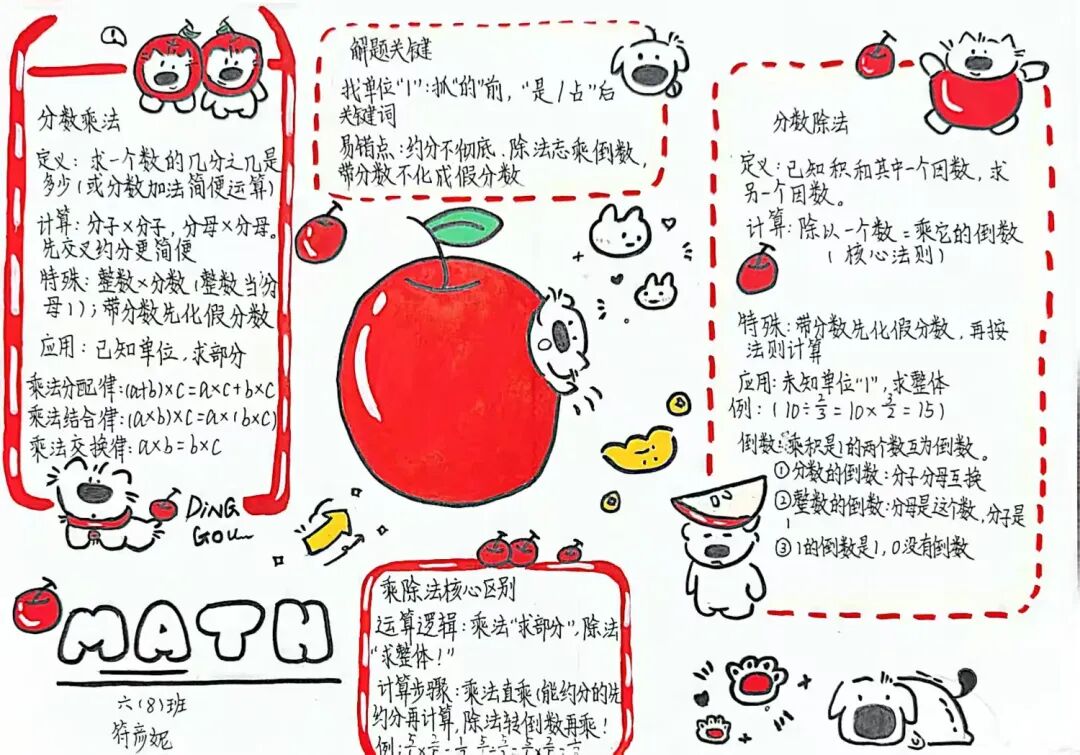 分数乘法
定义：求一个数的几分之几是
多少(或分数加法简便运算)
计算：分子×分子，分母×分母。
先交叉约分更简便
特殊：整数×分数(整数当分
母1)；带分数先化假分数
应用：已知单位，求部分
乘法分配律：(a+b)×c=a×c+b×c
乘法结合律：(a×b)×c=a×(b×c)
乘法交换律：a×b=b×c
DiNG
GOU
解题关键
找单位"1"：抓"的"前，"是/占"后
关键词
易错点：约分不彻底．除法忘乘倒数，
带分数不化成假分数
分数除法
定义：已知积和其中一个因数，求
另一个因数。
计算：除以一个数=乘它的倒数
(核心法则)
特殊：带分数先化假分数，再按
法则计算
应用：未知单位"1"，求整体
例：(10÷2/3=10×3/2=15)
倒数：乘积是1的两个数互为倒数。
①分数的倒数：分子分母互换
②整数的倒数：分母是这个数，分子是
1
③1的倒数是1，0没有倒数
乘除法核心区别
运算逻辑：乘法"求部分"，除法
"求整体！"
计算步骤：乘法直乘(能约分的先
约分再计算，除法转倒数再乘！
例：
MATH
六(8)班
符彦妮